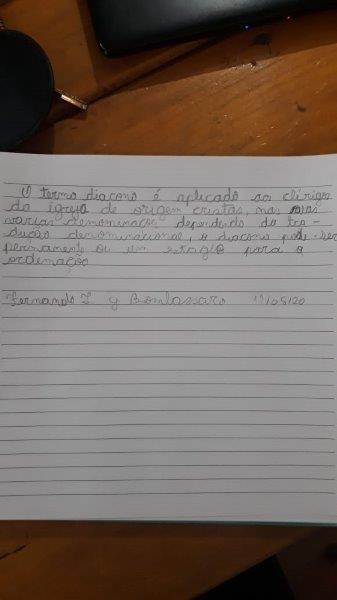 O termo diacono é aplicado aos clérigos
da igreja de origem cristas, nas suas
varias denominaçoes dependendo da tra-
dução denominacional, o diacono pode ser
permanente ou um estagio para a
ordenação
Fernando I g Bombassaro 11/05/20